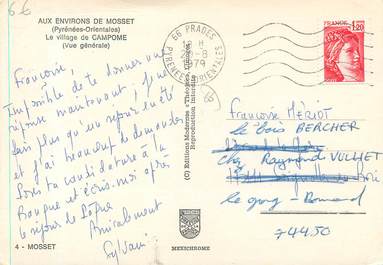 66
AUX ENVIRONS DE MOSSET
(Pyrénées-Orientales)
Le village de CAMPOME
(Vue générale)
Françoise,
Impossible de te donner une
réponse maintenant; je ne
sais plus qu'en
et j'ai beaucoup de demandes
ta candidature à la
Rouque et écris-moi après
le séjour de
Amicalement
Sylvain
4 - MOSSET
(C) Editions Modernes - Théojac, Limoges
Reproduction interdite
MEXICHROME
66 PRADES
PYRENEES ORIENTALES
1979
FRANCE
1,20
Françoise MÉRIOT
le bois BERCHER
chez Raymond VULLIET
le gong - Romand
74450